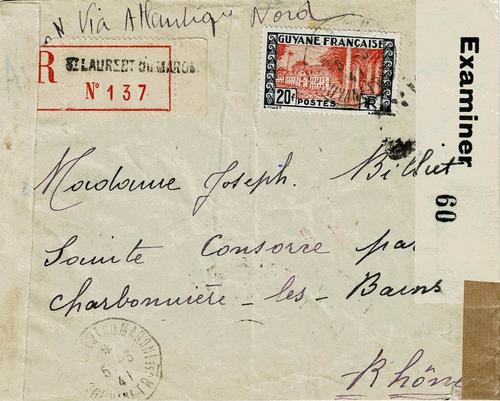 Via Atlantique Nord
R
ST LAURENT DU MARONI
N° 137
GUYANE FRANÇAISE
20F POSTES RF
Examiner 60
Madame Joseph. Billut
Sainte Consorce par
Charbonnière-les-Bains
Rhône
5 41